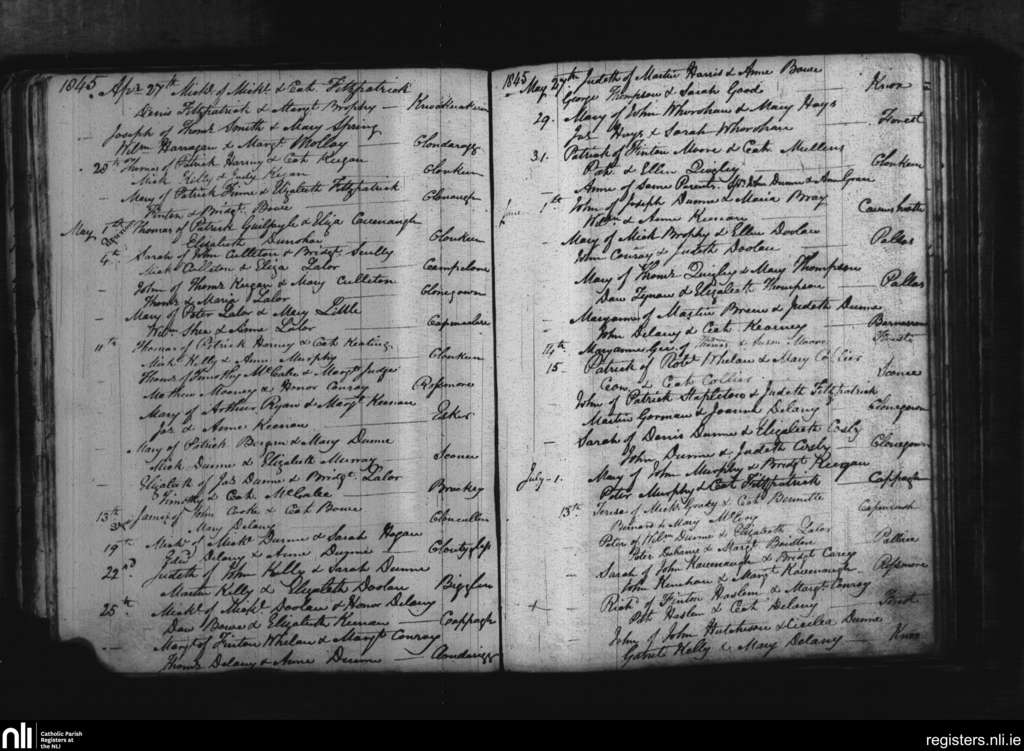 1845. Apr 27th Mich.l of Mich.l & Cath Fitzpatrick
Denis Fitzpatrick & Margt Brophy —
— Joseph of Thoms Smith & Mary Spring
Willm Harragan & Margt Molloy —
28th Thomas of Patrick Harny & Cath Keegan
Mich Kelly & Judy Kegan — Clonkeen
— Mary of Patrick & Elizabeth Fitzpatrick
& Bridgt Bowe
May 1st Thomas of Patrick Guilfoyle & Eliza Cavenaugh
Elizabeth Donohoe — Clonkeen
4th Sarah of John Culleton & Bridgt Scully
Mich Culleton & Eliza Lalor —
— John of Thoms Kegan & Mary Culleton
Thoms & Maria Lalor — Clonegown
— Mary of Peter Lalor & Mary Little
Willm Shea & Anne Lalor —
11th Thomas of Patrick Harny & Cath Keating
Mich Kelly & Ann Murphy — Clonkeen
Thoms of Timothy McCabe & Margt Judge
Mathew Mooney & Honor Conroy — Rossmore
Mary of Arthur Ryan & Margt Keenan
Jas & Anne Keenan — Esker
Mary of Patrick Bergin & Mary Dunne
Mich Dunne & Elizabeth Murray — Sconce
Elizabeth of Jas Dunne & Bridgt Lalor
Timothy & Cath McCabe — Brockey
13th James of John Cooke & Cath Bowe
Mary Delany
19th Mich.l of Mich.l Dunne & Sarah Hogan
Edwd Delany & Anne Dunne —
22nd Judeth of John Kelly & Sarah Dunne
Martin Kelly & Elizabeth Doolan —
25th Mich.l of Mich.l Doolan & Honor Delany
Dan Bowe & Elizabeth Keenan — Cappagh
— Margt of Finton Whelan & Margt Conroy
Thoms Delany & Anne Dunne —
1845 May 27th Judeth of Martin Harris & Anne Bowe
George Thompson & Sarah Good — Knox
29. Mary of John Whorohan & Mary Hays
Jas Hays & Sarah Whorohan — Forest
31. Patrick of Finton Moore & Cath Mullens
Patk & Ellen Quigley — Clonkeen
— Anne of Same Parents. John Dunne & Ann Grace
June 1st John of Joseph Dunne & Maria Bray
Willm & Anne Keenan —
Mary of Mich Brophy & Ellen Doolan
John Conray & Judeth Doolan — Pallas
Mary of Thoms Quigley & Mary Thompson
Dan & Elizabeth Thompson — Pallas
— Maryanne of Martin Breen & Judeth Dunne
John Delany & Cath Kearney —
14th. Maryanne of Thomas & Susan Moore
15 — Patrick of Robt Whelan & Mary Collier
& Cath Collier — Sconce
John of Patrick Stapleton & Judeth Fitzpatrick
Martin Gorman & Joanna Delany — Clonegown
— Sarah of Denis Dunne & Elizabeth Cosby
John Dunne & Judeth Cosby — Clonegown
July 1. Mary of John Murphy & Bridgt Keegan
Peter Murphy & Cath Fitzpatrick — Cappagh
13th Teresa of Mich.l Grady & Cath
Bernard & Mary McEvoy
Peter of Willm Dunne & Elizabeth Lalor
Peter & Margt — Pallice
— Sarah of John Kavenaugh & Bridgt Carey
John & Margt Kavenaugh — Rossmore
+ — Richd of Finton Haslem & Margt Conray
Patk Haslem & Cath Delany — Forest
John of John Hutchison & Cecelia Dunne
Garrett Kelly & Mary Delany — Knox
nli
Catholic Parish
Registers at
the NLI
registers.nli.ie